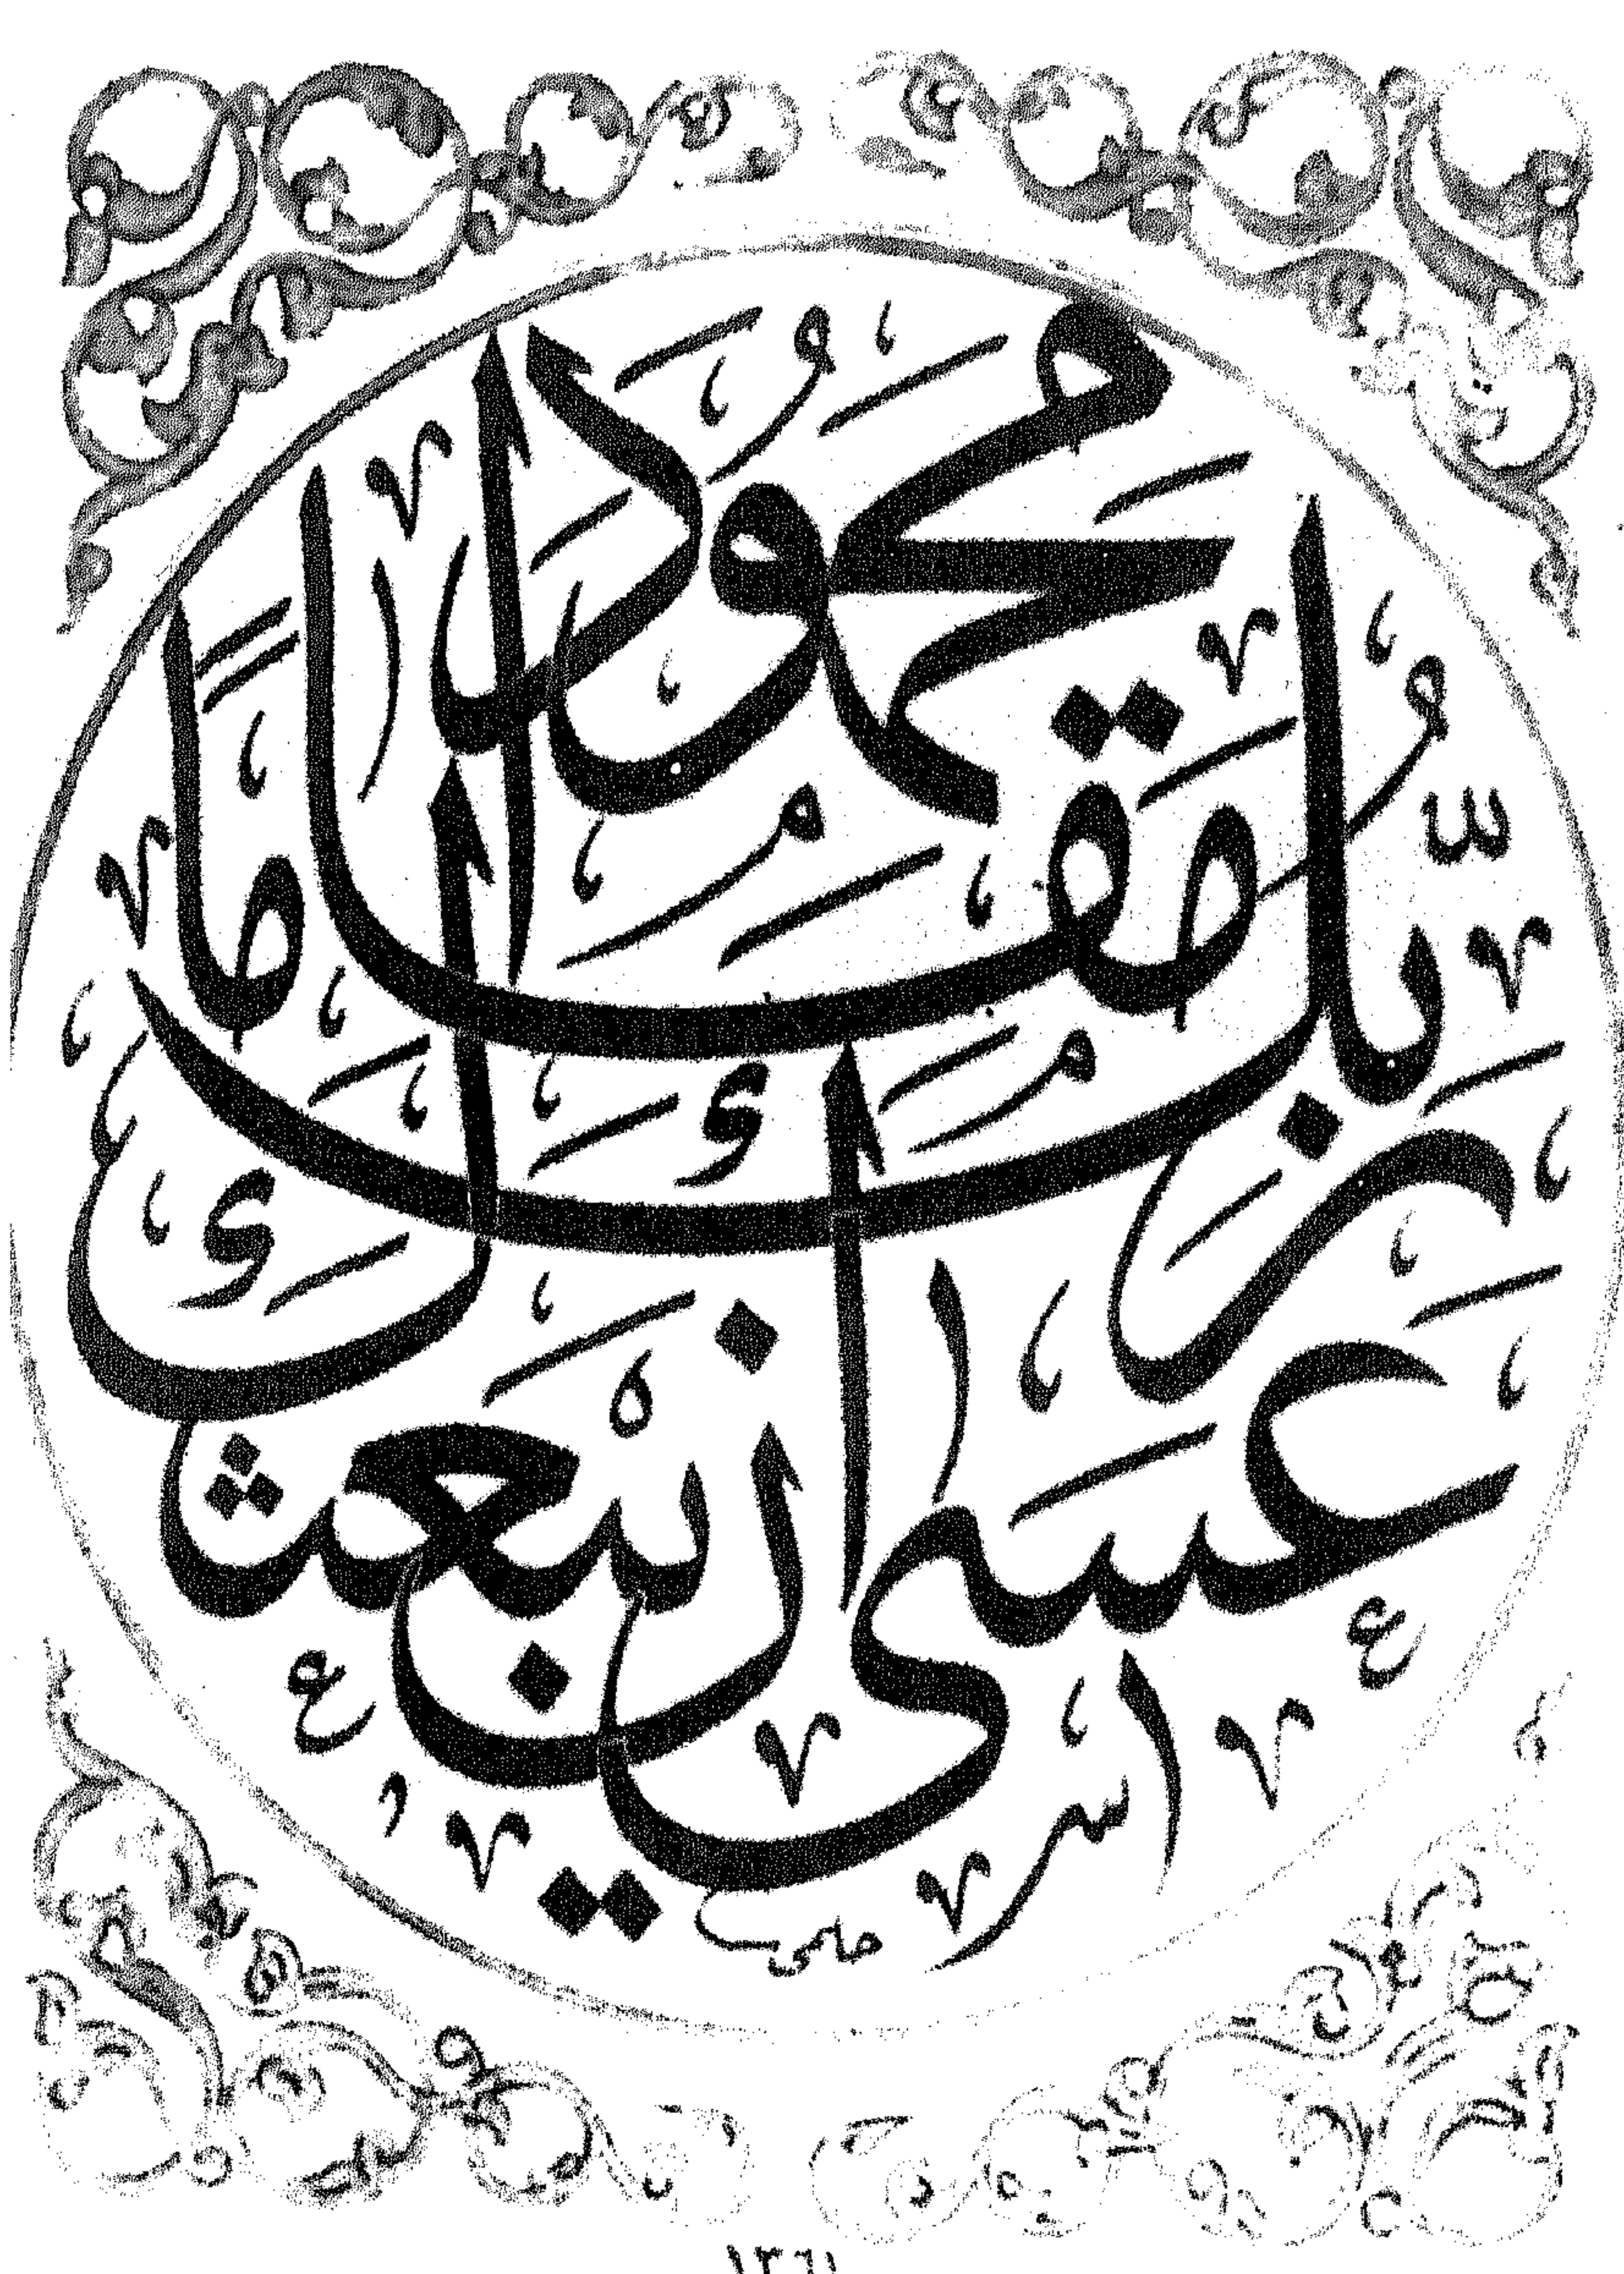 عَسَى أَنْ يَبْعَثَكَ
رَبُّكَ مَقَامًا
مَحْمُودًا
١٣٦١